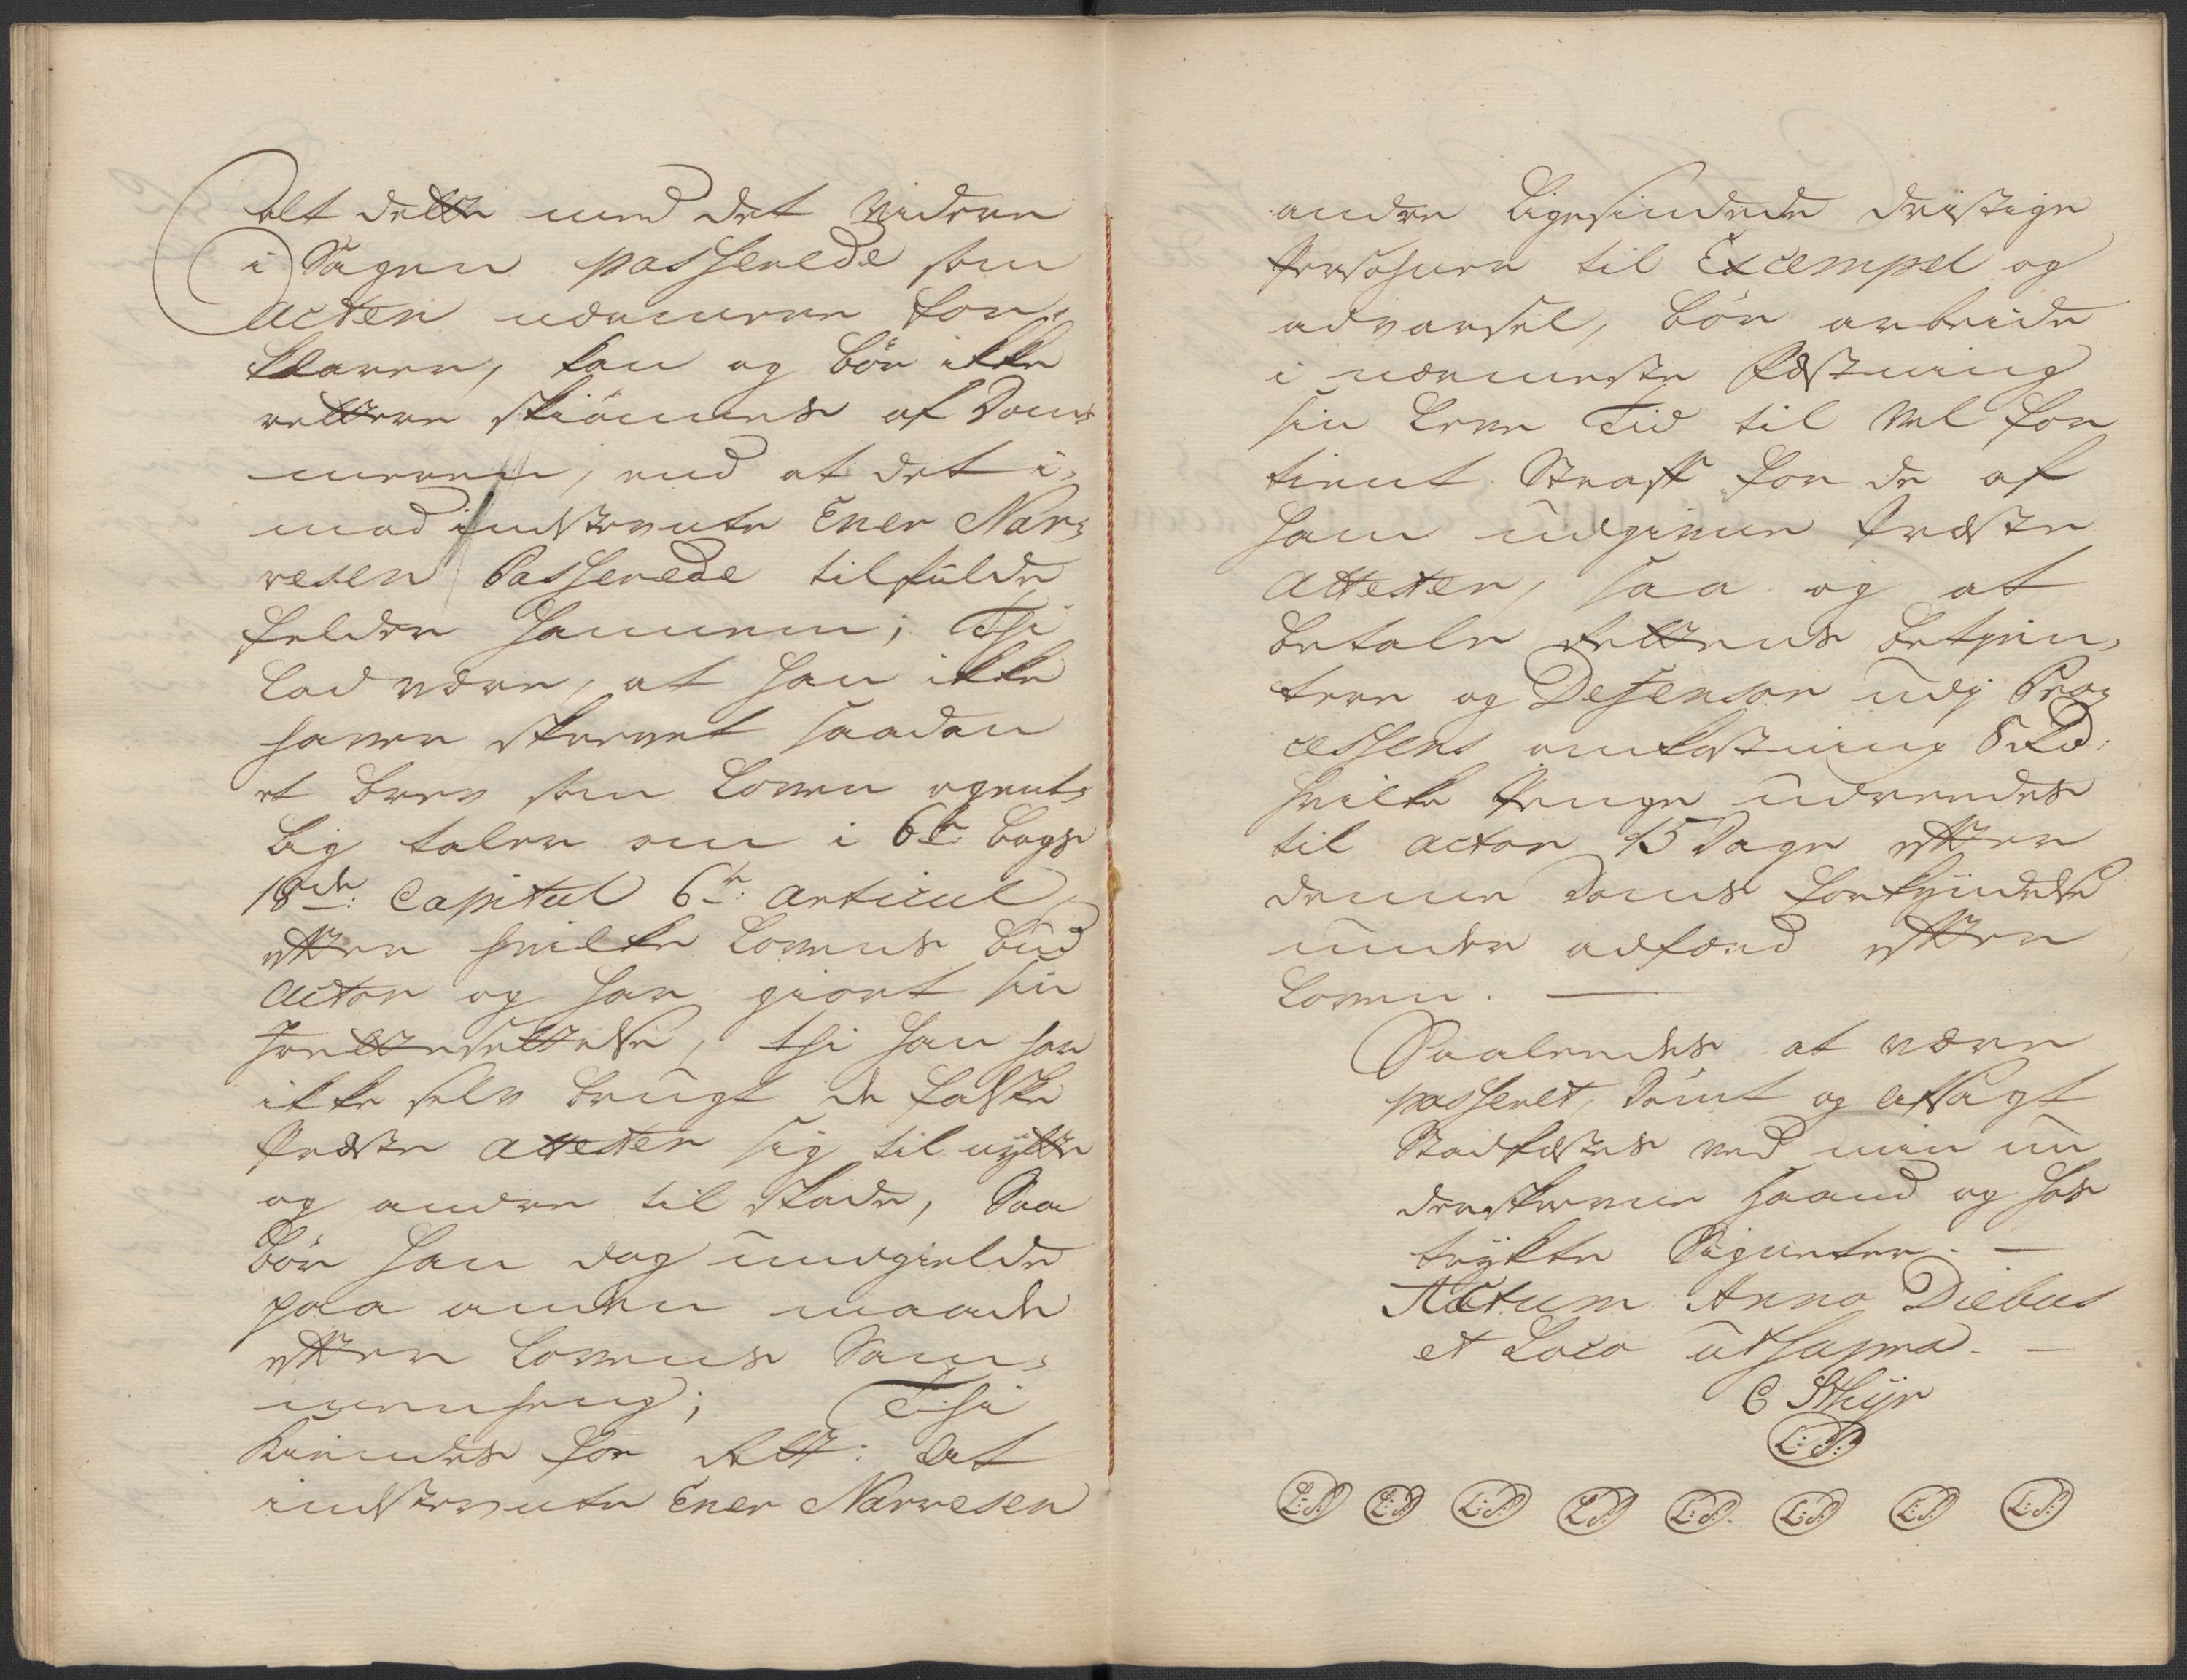 alt dette med det videre
i Sagen passerede som
Acten nærmere for,
klarer, kan og bör ikke
rettere skiönnes af Dom¬
meren, end at det i,
mod indstevnte Ener Nar¬
resen Passerede tilfulde
felder hannem; Thi
Lad være, at han ikke
haver skrevet saadan
et brev som Loven egent¬
lig taler om i 6te bogs
18de: Capitul 6te: Articul,
efter hvilke Lovens bud
Actor og har giort sin
Irettesettelse, thi han har
ikke selv brugt de falske
Præste Attester sig til nytte
og andre til skade, Saa
bör han dog undgielde
paa anden maade
efter Lovens Sam¬
menheng; Thi
kiendes for Rett: At
indstevnte Ener Narvesen
andre Ligesindede dristige
Persohner til Excempel og
advarsel, bör arbeide
i nærmeste Fæstning
sin Leve Tid til vel for
tient Straff for de af
ham udgivne Præste
Attester, saa og at
betale Rettens betien,
tere og Defensor udj Pro¬
cessens omkostning 8 Rd:
hvilke Penge udreedes
til Actor 15 Dage efter
denne Doms forkyndelse
under adfærd efter
Loven. —
Saaledes at være
passeret, Dömt og afsagt
Stadfæstes ved min un
derskrevne Haand og hos
trykte Signeter. —
Actum Anno Diebus
et Loco ut supra. —
C Sthyr
L: S:
L: S: L: S: L: S: L: S: L: S: L: S: L: S: L: S: